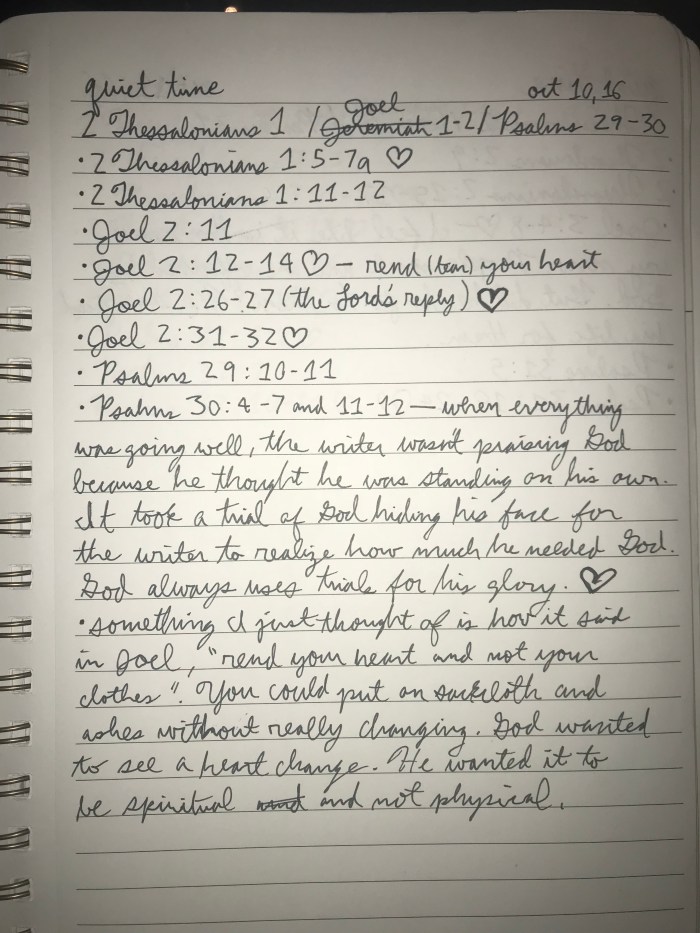 quiet time oct 10, 16
2 Thessalonians 1 / Jeremiah Joel 1-2 / Psalms 29-30
• 2 Thessalonians 1:5-7a ♡
• 2 Thessalonians 1:11-12
• Joel 2:11
• Joel 2:12-14 ♡ – rend (tear) your heart
• Joel 2:26-27 (the Lord's reply) ♡
• Joel 2:31-32 ♡
• Psalms 29:10-11
• Psalms 30:4-7 and 11-12 — when everything
was going well, the writer wasn't praising God
because he thought he was standing on his own.
It took a trial of God hiding his face for
the writer to realize how much he needed God.
God always uses trials for his glory. ♡
• something I just thought of is how it said
in Joel, "rend your heart and not your
clothes". You could put on sackcloth and
ashes without really changing. God wanted
to see a heart change. He wanted it to
be spiritual and and not physical.